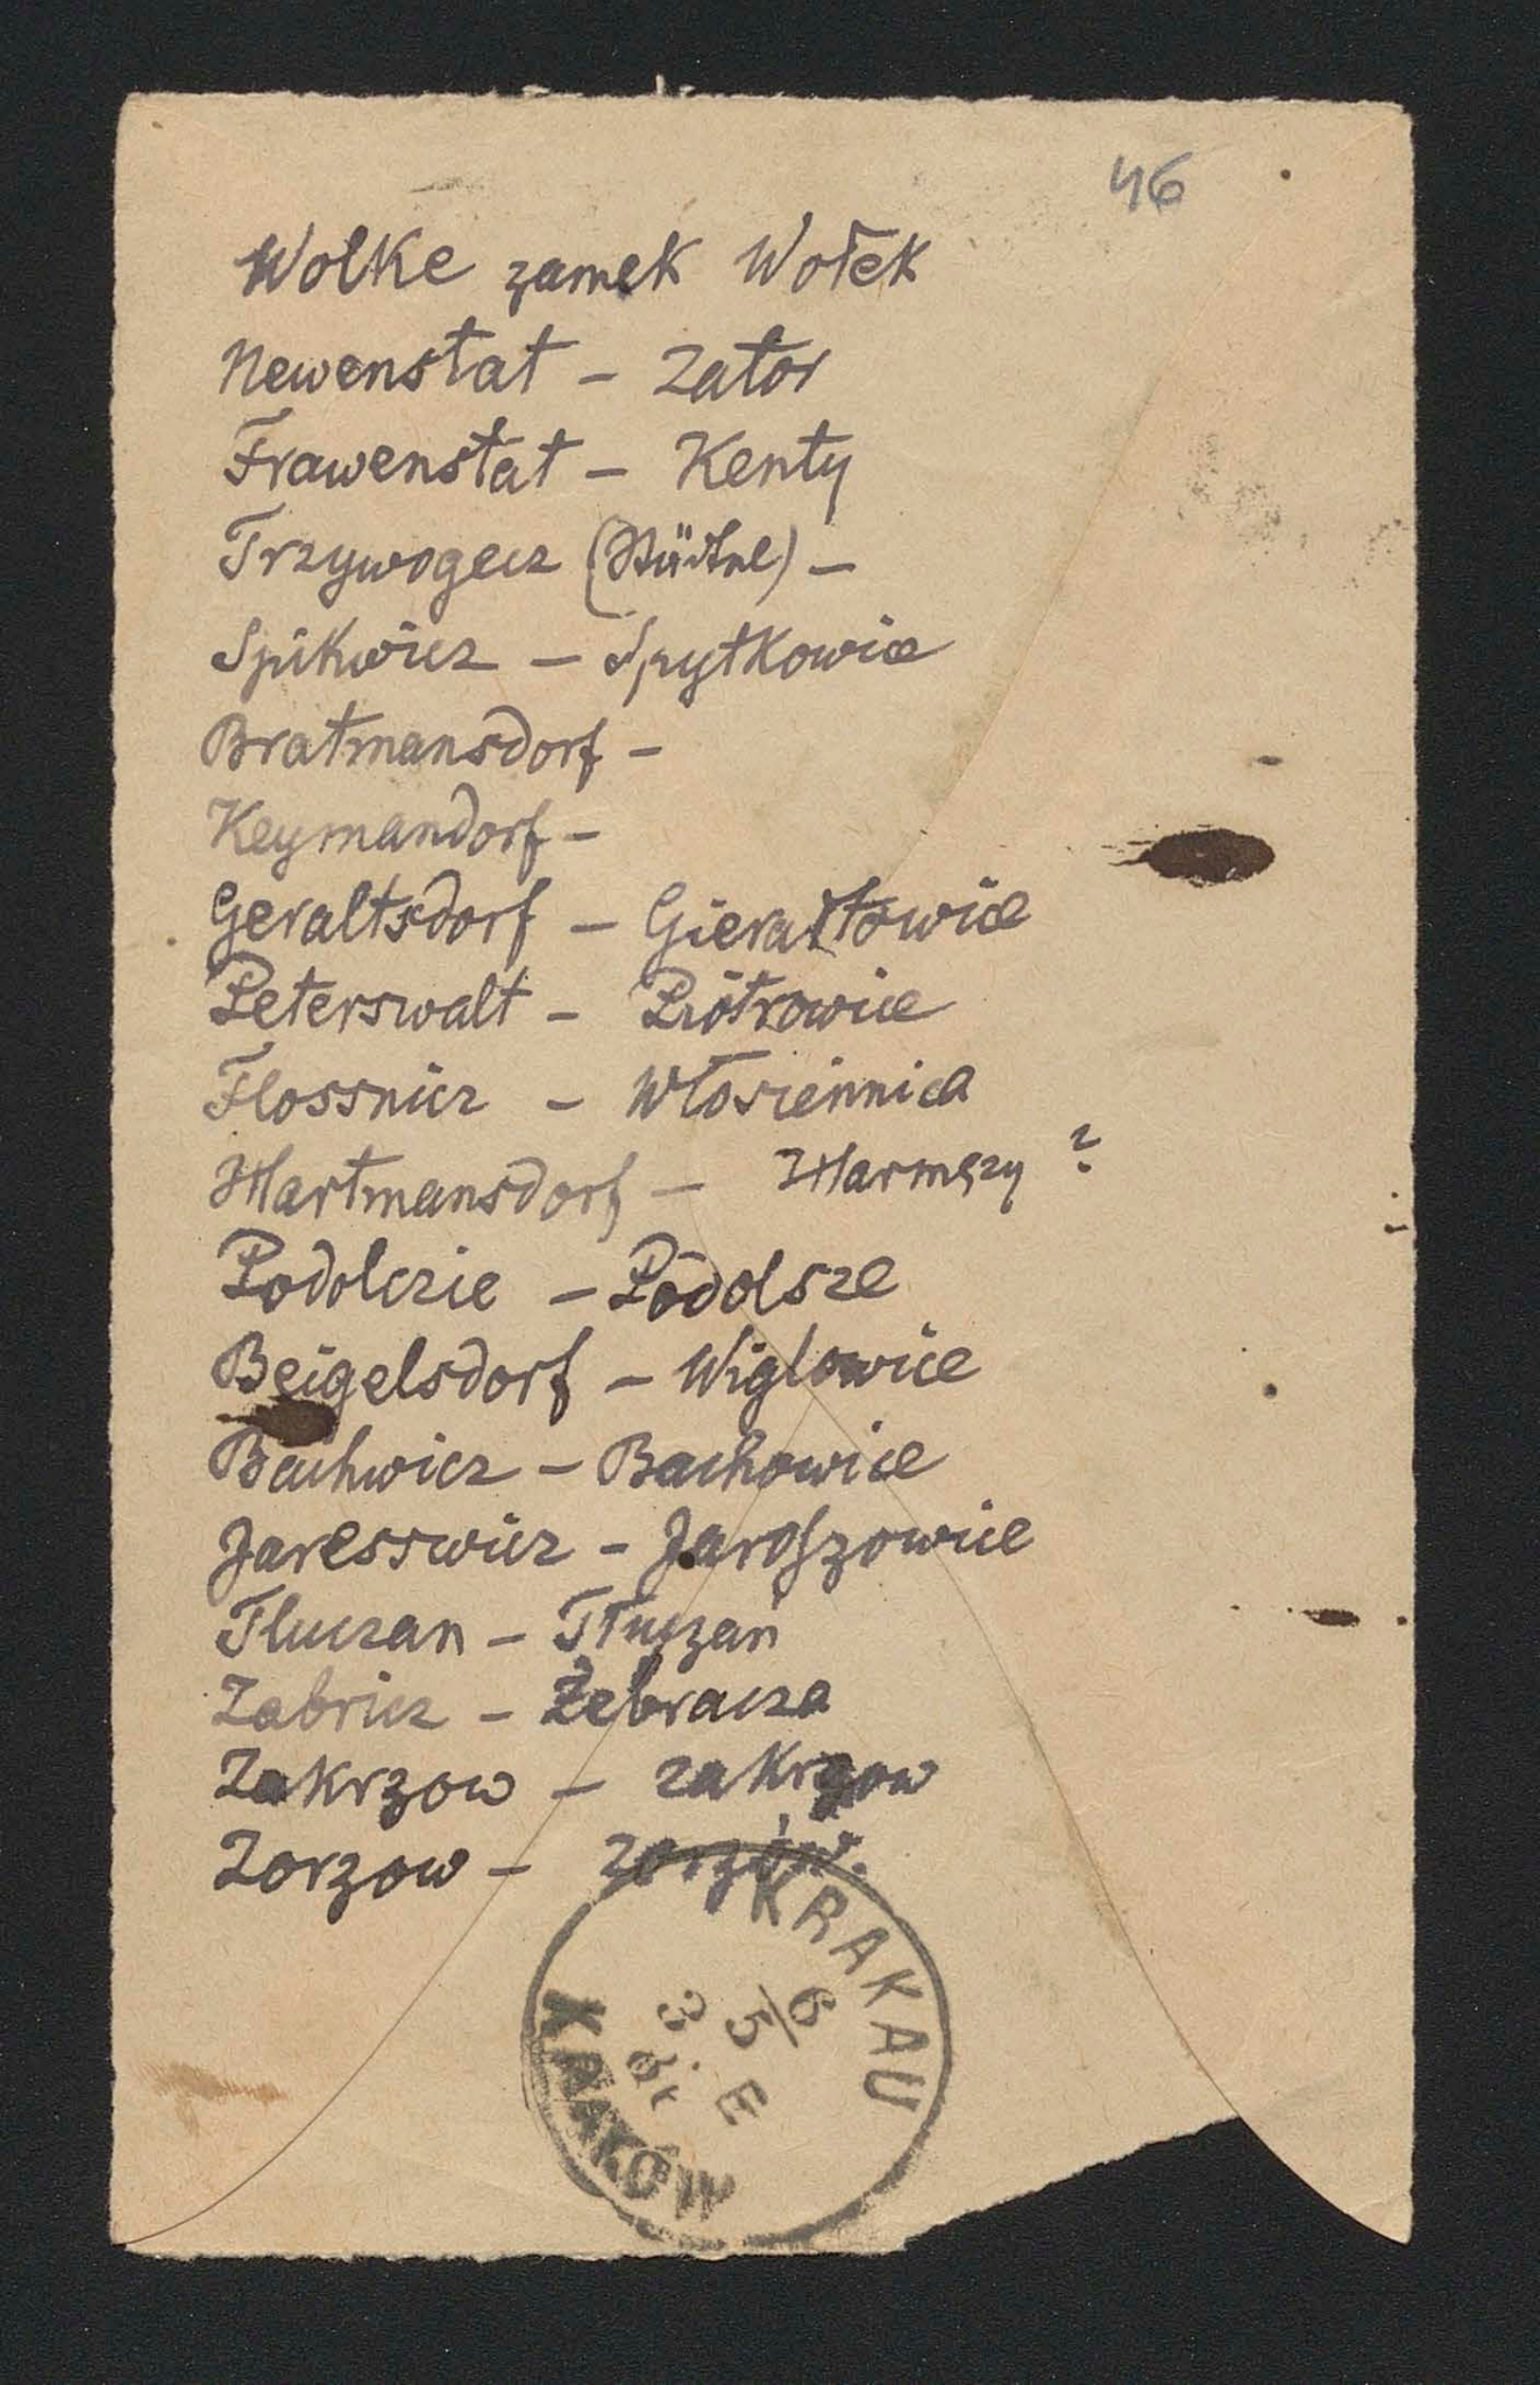 46
Wolke zamek Wołek
Newenstat – Zator
Frawenstat – Kenty
Trzywogecz (Städtne) –
Spikwicz – Spytkowice
Bratmansdorf –
Keymandorf –
Geraltsdorf – Gierałtowice
Peterswalt – Piotrowice
Flossnicz – Włosiennica
Hartmansdorf – Harmęzy ?
Podolczie – Podolsze
Beigelsdorf – Wiglowice
Bachwicz – Bachowice
Jaresswicz – Jaroszowice
Tluczan – Tłuczań
Zabricz – Żebracza
Zakrzow – zakrzow
Zorzow – zorzów.
KRAKAU
6/5
3
E
KRAKÓW